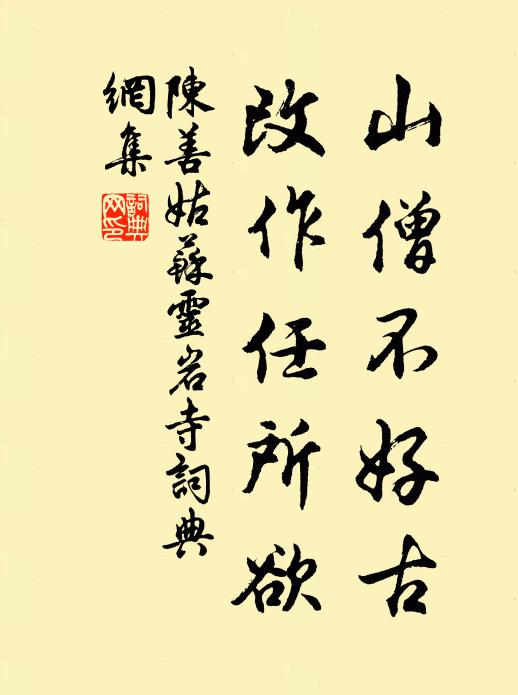 山僧不好古
改作任所欲
陳善姑蘇靈岩寺詞典
網集
詞典
网印